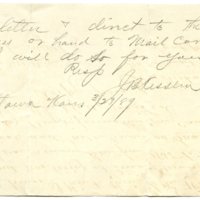 letter & direct to the
or hand to Mail Con
I will do so for you
Resp
J.B. Kessler
tawa Kans 3/29/89